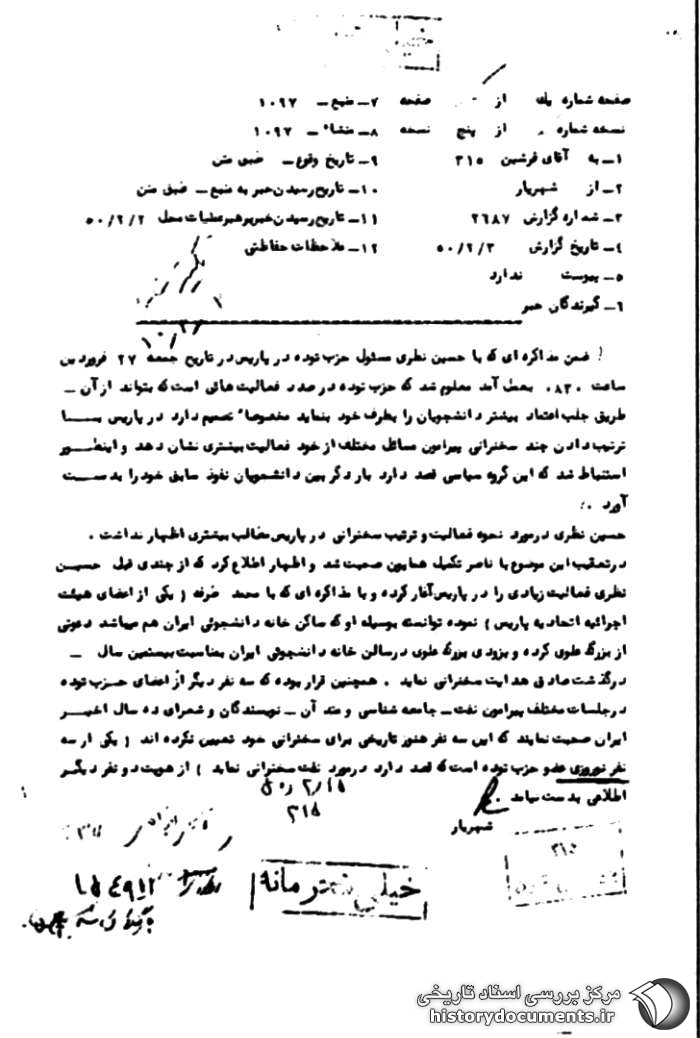 صفحه شماره یک از صفحه
نسخه شماره از پنج نسخه
۱ـ به آقای فرشین ۳۱۵
۲ـ از شهریار
۳ـ شماره گزارش ۲۶۸۷
۴ـ تاریخ گزارش ۵۰/۲/۳
۵ـ پیوست ندارد
۶ـ گیرندگان خبر
۷ـ منبع ـ ۱۰۹۷
۸ـ منشاء ـ ۱۰۹۷
۹ـ تاریخ وقوع ـ ضمن متن
۱۰ـ تاریخ رسیدن خبر به منبع ـ ضمن متن
۱۱ـ تاریخ رسیدن خبر برهبر عملیات محل ۵۰/۲/۲
۱۲ـ ملاحظات حفاظتی
ضمن مذاکره ای که با حسین نظری مسئول حزب توده در پاریس در تاریخ جمعه ۲۷ فروردین
ساعت ۰۸۳۰ بعمل آمد معلوم شد که حزب توده در صدد فعالیت هائی است که بتواند از آن ـ
طریق جلب اعتماد بیشتر دانشجویان را بطرف خود بنماید مخصوصاً تصمیم دارد در پاریس بـــا
ترتیب دادن چند سخنرانی پیرامون مسائل مختلف از خود فعالیت بیشتری نشان دهد و اینطـور
استنباط شد که این گروه سیاسی قصد دارد بار دگر بین دانشجویان نفوذ سابق خود را بدســـت
آورد .
حسین نظری در مورد نحوه فعالیت و ترتیب سخنرانی در پاریس مطالب بیشتری اظهار نداشت .
در تعاقب این موضوع با ناصر تکمیل همایون صحبت شد و اظهار اطلاع کرد که از چندی قبل حسیــن
نظری فعالیت زیادی را در پاریس آغاز کرده و با مذاکره ای که با محمد طرفه ( یکی از اعضای هیئت
اجرائیه اتحادیه پاریس ) نموده توانسته بوسیله او که ساکن خانه دانشجوئی ایران هم میباشد دعوتی
از بزرگ علوی کرده و بزودی بزرگ علوی در سالن خانه دانشجوئی ایران بمناسبت بیستمین سال ـ
درگذشت صادق هدایت سخنرانی نماید . همچنین قرار بوده که سه نفر دیگر از اعضای حـزب توده
در جلسات مختلف پیرامون نفت ـ جامعه شناسی و متد آن ـ نویسندگان و شعرای ده سال اخیـر
ایران صحبت نمایند که این سه نفر هنوز تاریخی برای سخنرانی خود تعیین نکرده اند ( یکی از سه
نفر نوروزی عضو حزب توده است که قصد دارد در مورد نفت سخنرانی نماید ) از هویت دو نفر دیگر
اطلاعی بدست نیامد .
۵۰/۲/۱۵
۳۱۵
شهریار
۳۱۵
خیلی محرمانه
مرکز بررسی اسناد تاریخی
historydocuments.ir